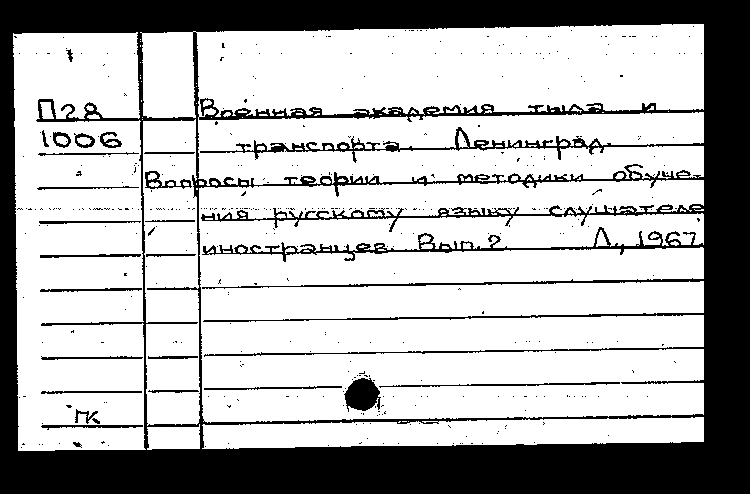 П28 Военная академия тыла и
1006 транспорта. Ленинград.
Вопросы теории и методики обуче-
ния русскому языку слушателе
иностранцев. Вып. 2. Л., 1967.
ПК